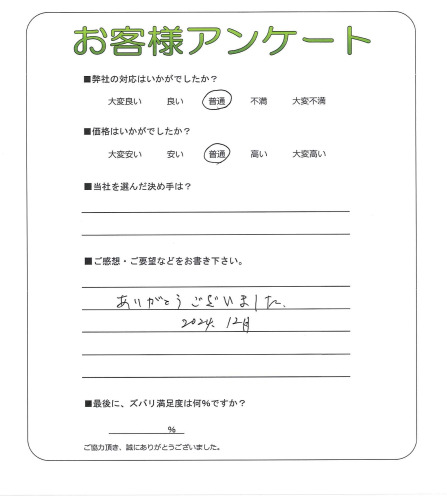 お客様アンケート
■弊社の対応はいかがでしたか?
大変良い 良い 普通 不満 大変不満
■価格はいかがでしたか?
大変安い 安い 普通 高い 大変高い
■当社を選んだ決め手は?
■ご感想・ご要望などをお書き下さい。
ありがとうございました.
2024. 12月
■最後に、ズバリ満足度は何%ですか?
%
ご協力頂き、誠にありがとうございました。